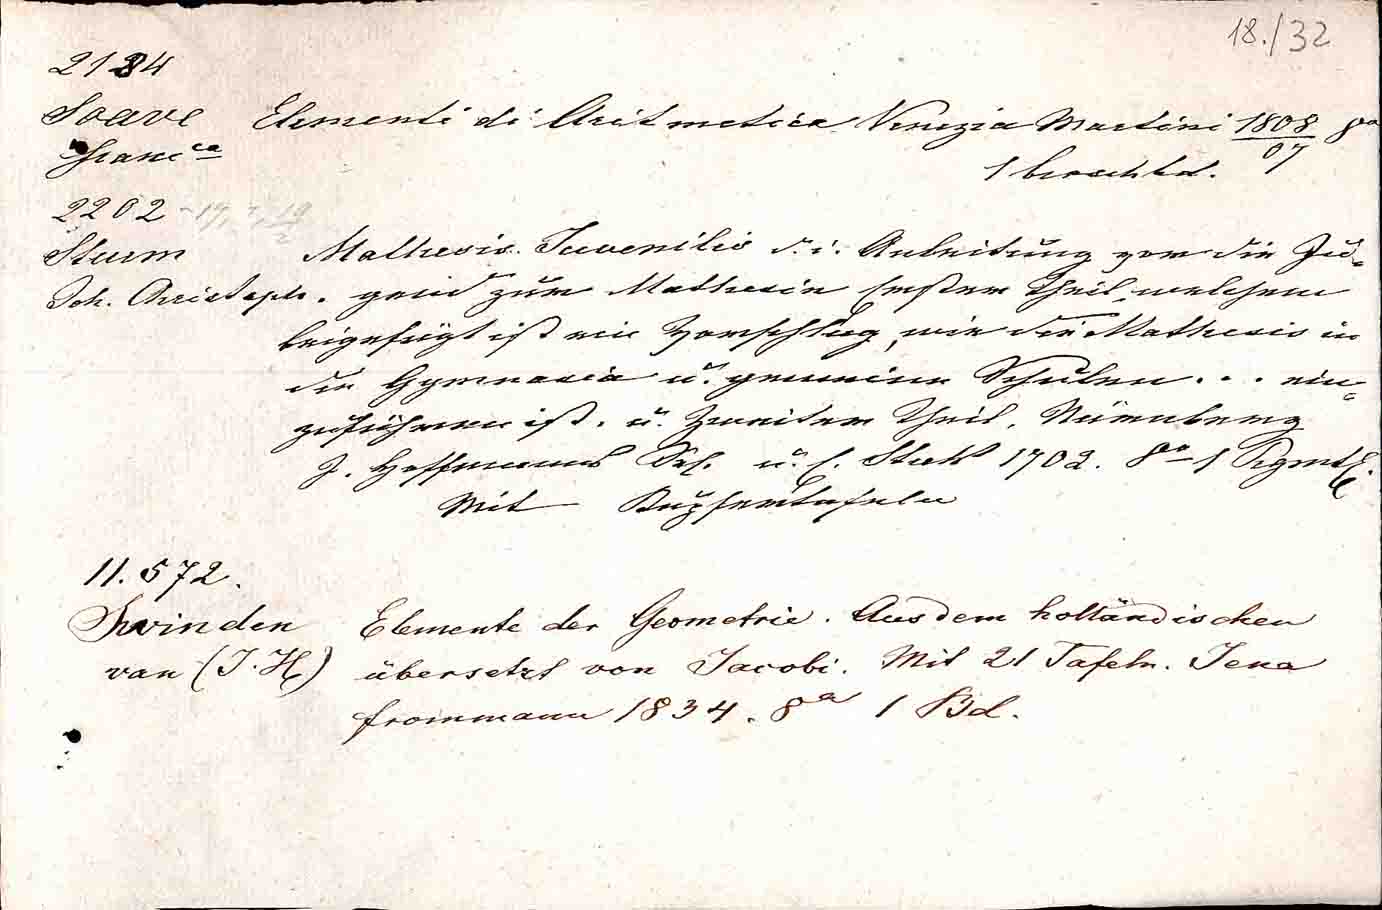 18./32
2184
Soave Elementi di Aritmetica Venezia Martini 1808/07 8°
Franc^ca 1 broschbd.
2202
Sturm Mathesis Juvenilis d. i. Anleitung vor die Ju=
Joh. Christoph. gend zur Mathesin Erster Theil, welchem
beigefügt ist ein Vorschlag, wie die Mathesis in
die Gymnasia u. gemeine Schulen ... ein=
zuführen ist. u. Zweiter Theil. Nürnberg
J. Hoffmanns u. Streck 1702. 8° 1
Mit Kupfertafeln
11.572.
Swinden Elemente der Geometrie. Aus dem holländischen
van (J. H.) übersetzt von Jacobi. Mit 21 Tafeln. Jena
frommann 1834. 8° 1 Bd.